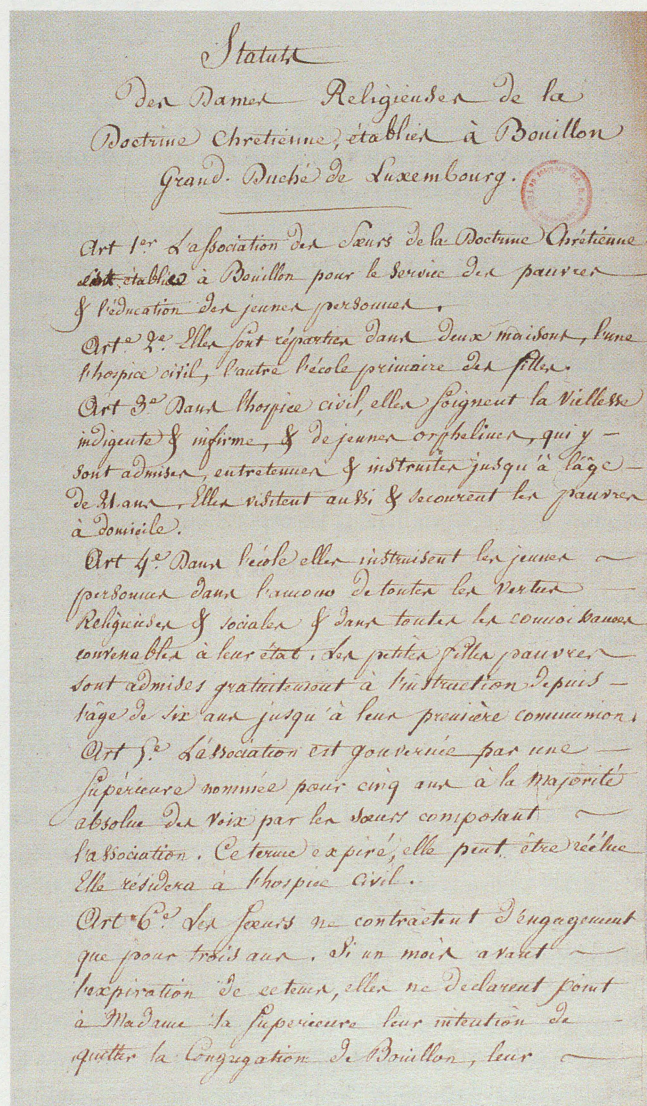 Statuts
Des Dames Religieuses de la
Doctrine Chretienne, établies à Bouillon
Grand-Duché de Luxembourg.
Art 1er L'association des Sœurs de la Doctrine Chrétienne
est établie à Bouillon pour le service des pauvres
& l'éducation des jeunes personnes.
Arte 2e Elles sont réparties dans deux maisons, l'une
l'hospice civil, l'autre l'école primaire des filles.
Art 3e Dans l'hospice civil, elles soignent la viellesse
indigente & infirme, & de jeunes orphelines, qui y
sont admises, entretenues & instruites jusqu'à l'âge
de 21 ans. Elles visitent aussi & secourent les pauvres
à domicile.
Art 4e Dans l'école elles instruisent les jeunes
personnes dans l'amour de toutes les vertus
Religieuses & sociales & dans toutes les connoissances
convenables à leur état. Les petites filles pauvres
sont admises gratuitement à l'instruction depuis
l'âge de six ans jusqu'à leur première communion.
Art 5e L'association est gouvernée par une
Supérieure nommée pour cinq ans à la majorité
absolue des voix par les sœurs composant
l'association. Ce terme expiré, elle peut être réélue
Elle résidera à l'hospice civil.
Art 6e Les sœurs ne contractent d'engagement
que pour trois ans. Si un mois avant
l'expiration de ce tems, elles ne declarent point
à Madame la Superieure leur intention de
quitter la Congregation de Bouillon, leur